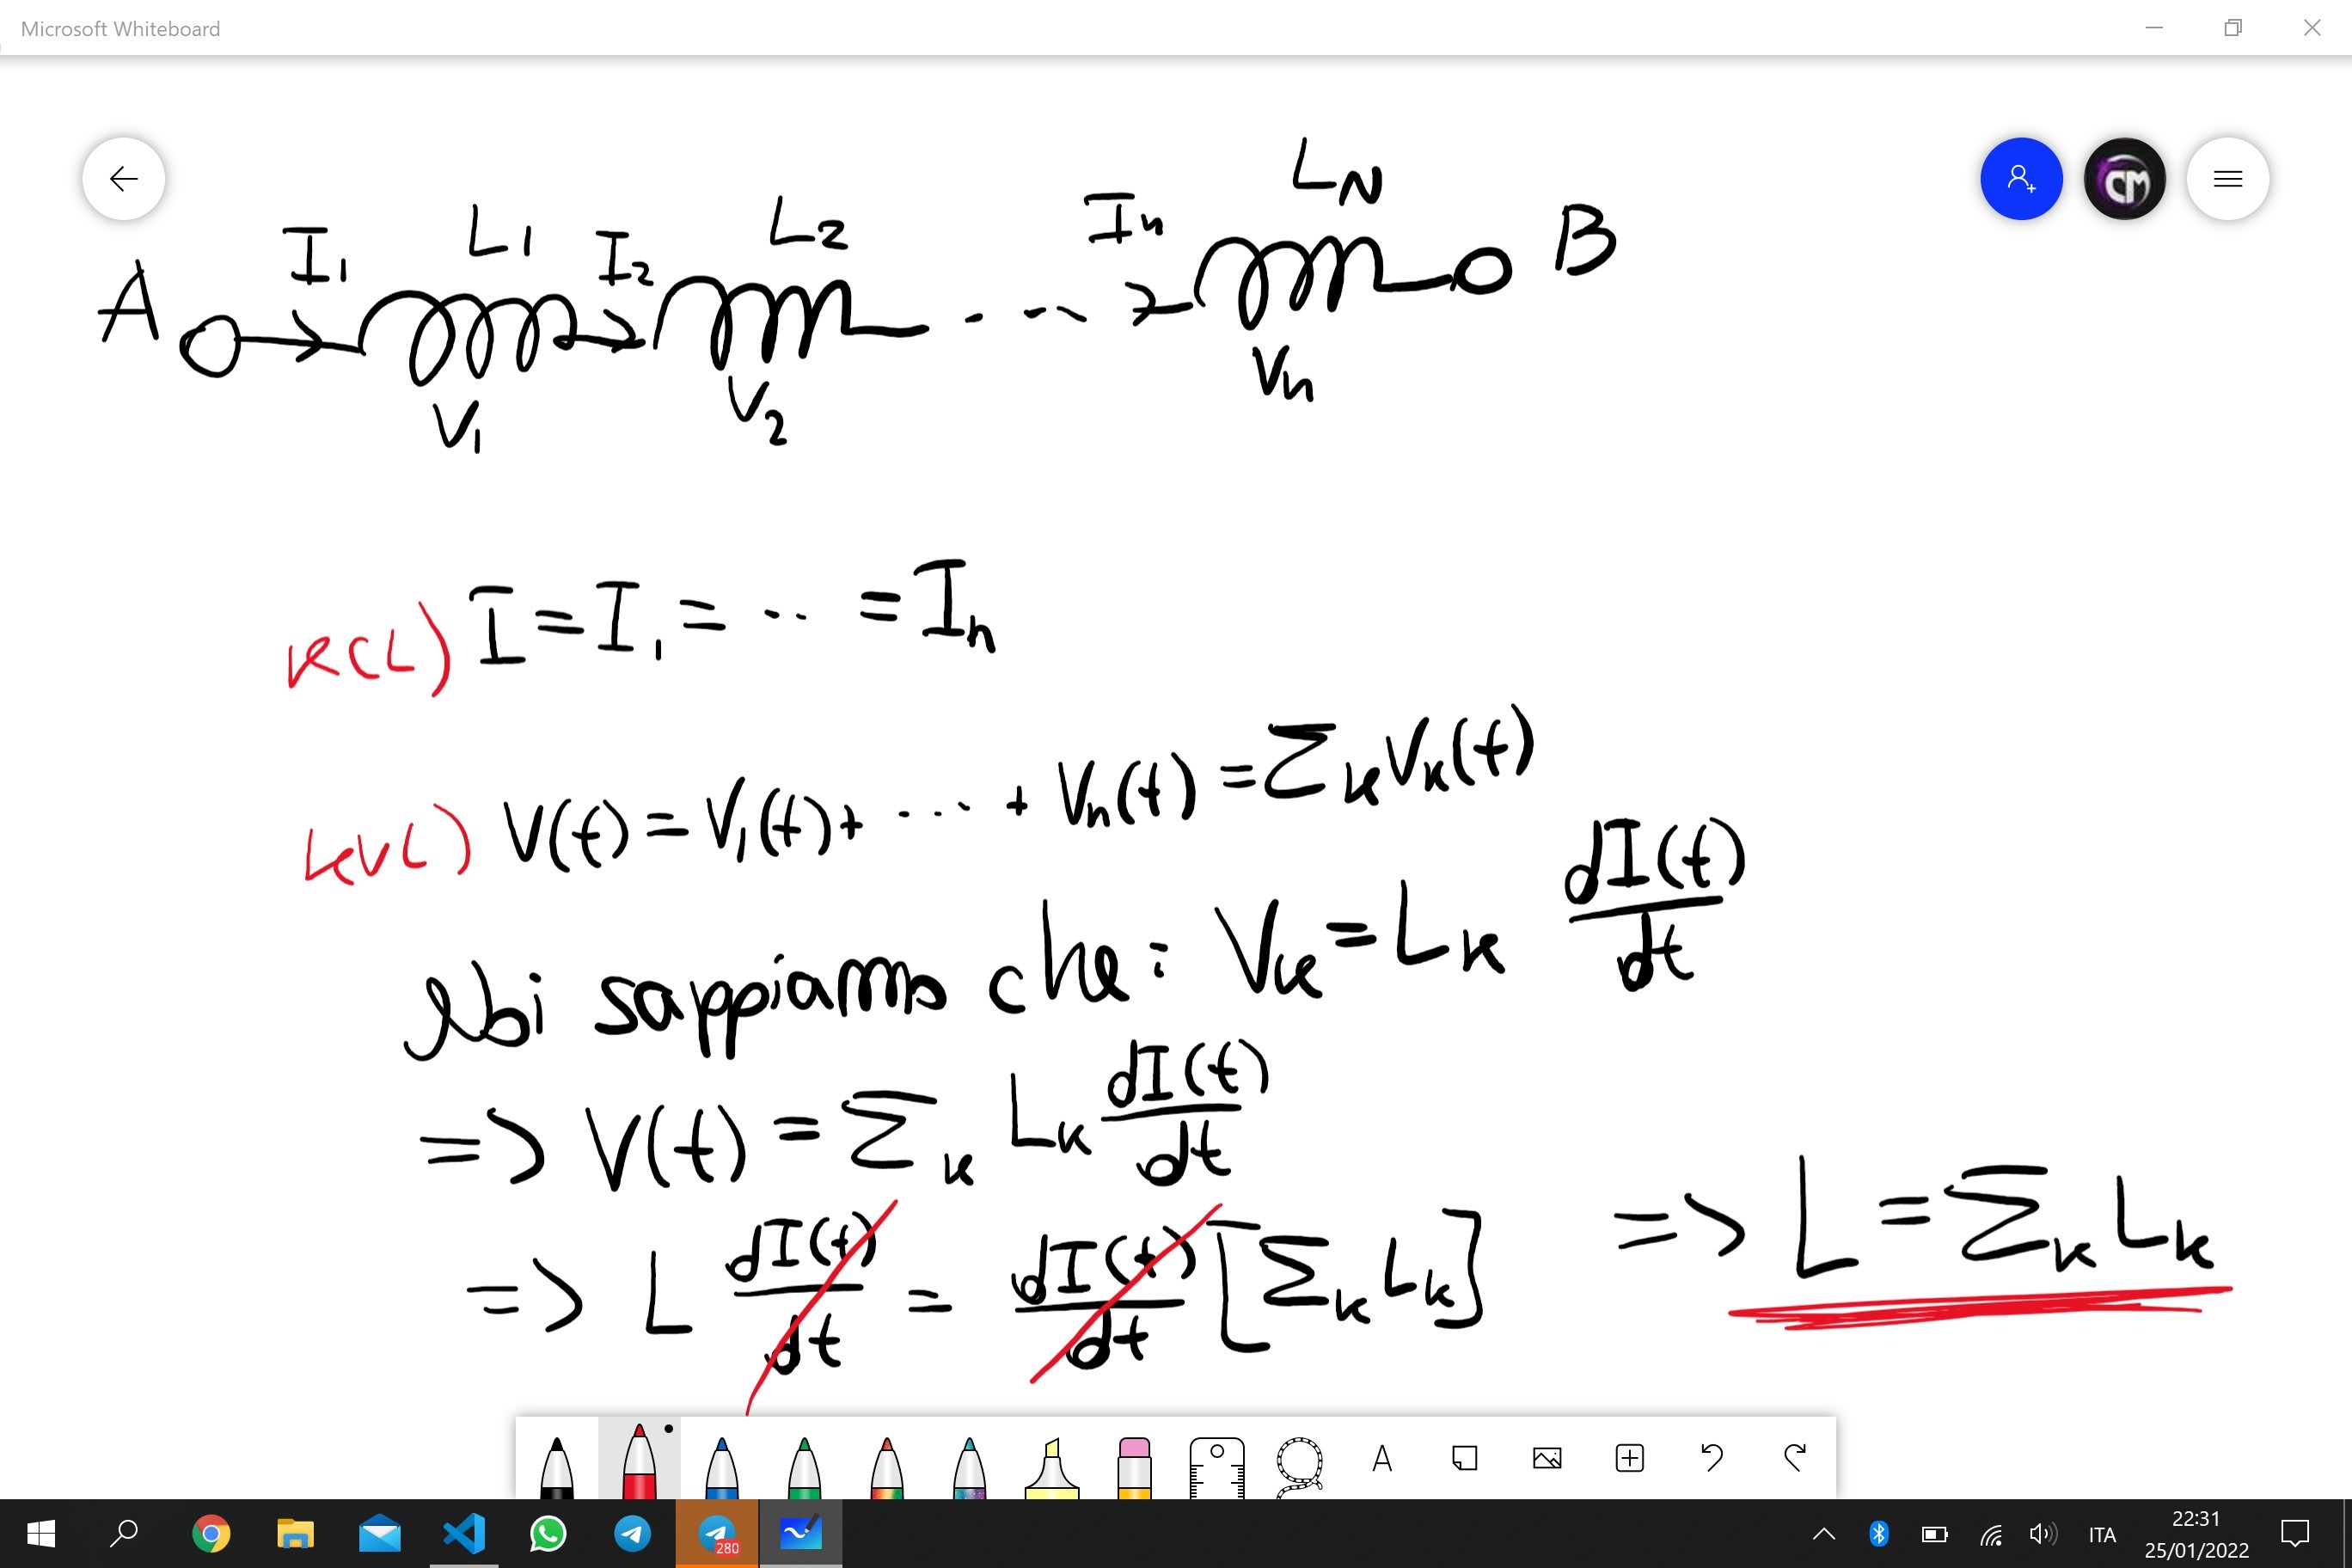 Microsoft Whiteboard
A I₁ L₁ I₂ L₂ ... Iₙ L_N B
V₁ V₂ Vₙ
KCL) I = I₁ = ... = Iₙ
KVL) V(t) = V₁(t) + ... + Vₙ(t) = Σₖ Vₖ(t)
Noi sappiamo che: Vₖ = Lₖ dI(t)/dt
=> V(t) = Σₖ Lₖ dI(t)/dt
=> L dI(t)/dt = dI(t)/dt [Σₖ Lₖ] => L = Σₖ Lₖ
CM
A
280
ITA
22:31
25/01/2022